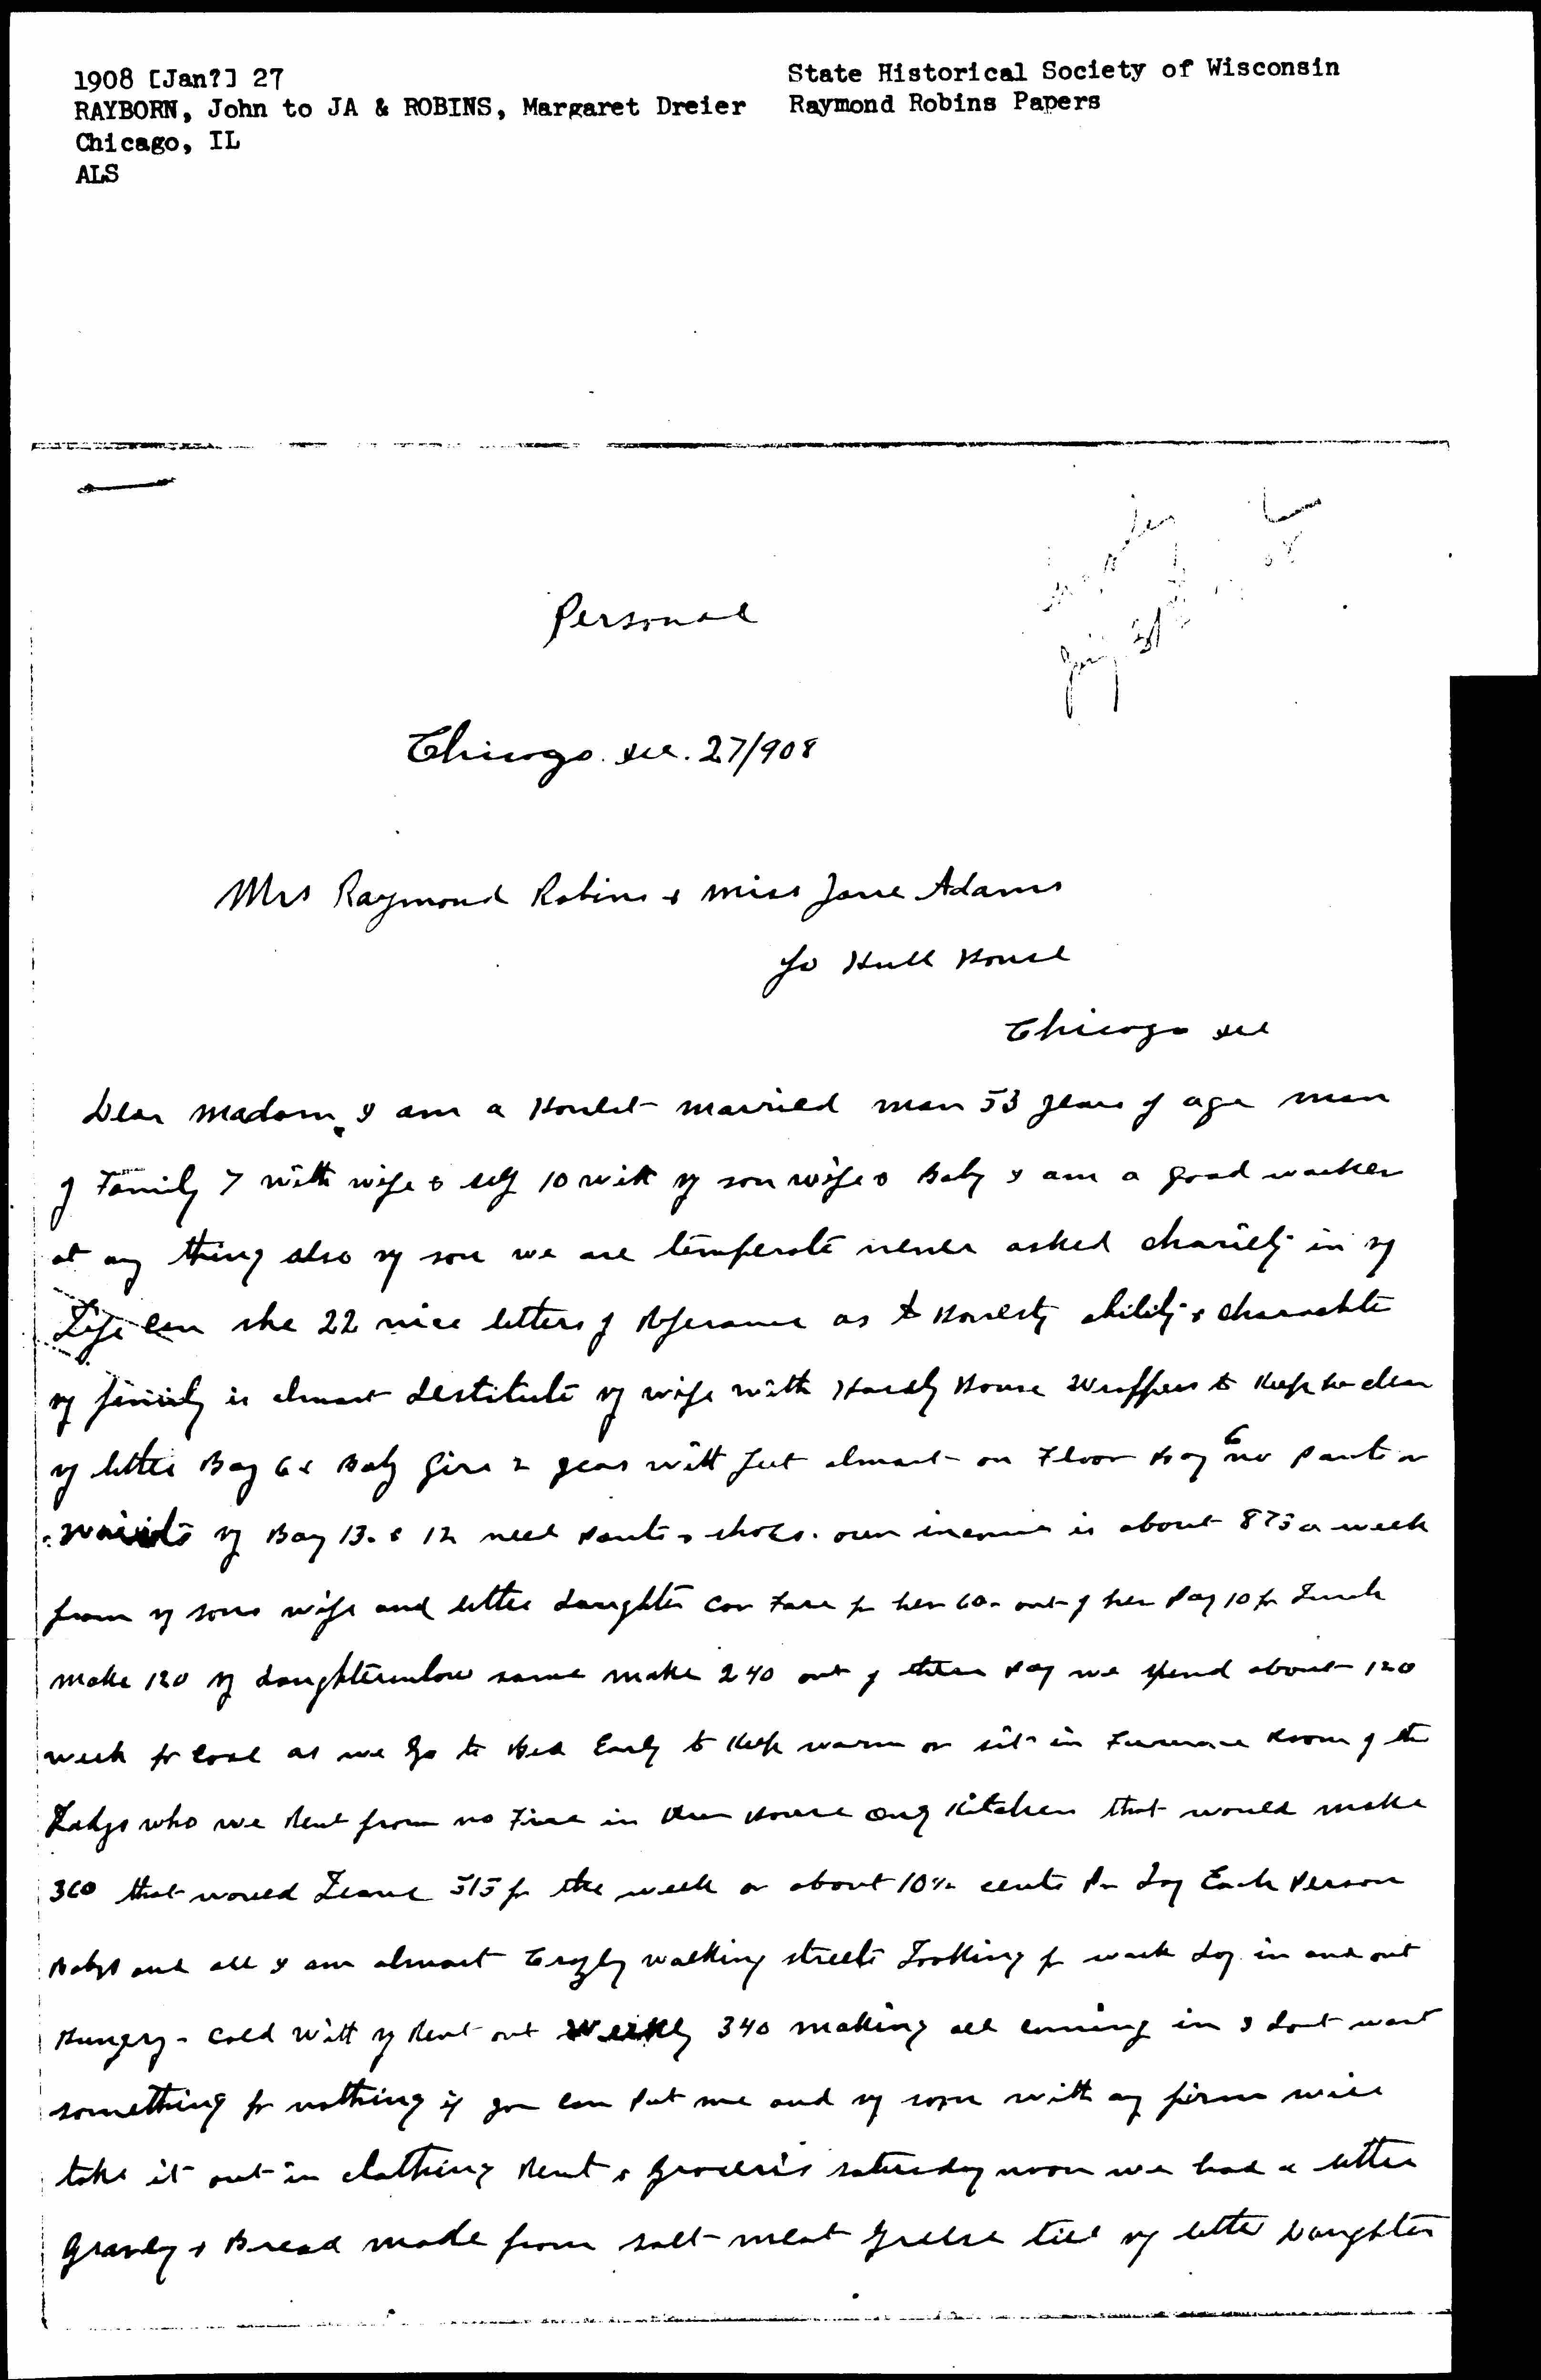 1908 [Jan?] 27
RAYBORN, John to JA & ROBINS, Margaret Dreier
Chicago, IL
ALS
State Historical Society of Wisconsin
Raymond Robins Papers
Personal
Chicago. Ill. 27/908
Mrs Raymond Robins & Miss Jane Adams
c/o Hull House
Chicago Ill
Dear Madam, I am a Honest married man 53 years of age man
of Family 7 with wife & self 10 with my son wife & Baby I am a good worker
at any thing also my son we are temperate never asked chariety in my
Life can sho 22 nice letters of Referance as to Honesty ability & charackte
my family is almost destitute my wife with Hardly House Wrappers to Keep her clean
my little Boy 6 & Baby Girl 2 years with feet almost on Floor Boy 6 no Pants or
waists my Boy 13. & 12 need Pants & shoes. our income is about 875 a week
from my sons wife and little daughter Car Fare for her 60 out of her Pay 10 for Lunch
make 120 my daughterinlaw same make 240 out of their Pay we spend about 120
week for coal as we Go to Bed Early to Keep warm or sit in Furnace Room of the
Ladys who we Rent from no Fire in Our House only Kitchen that would make
360 that would Leave 515 for the week or about 10½ cents Per day Each Person
Babys and all I am almost Crazy walking streets Looking for work day in and out
Hungry - Cold With my Rent out Weekly 340 making all coming in I dont want
something for nothing if you can Put me and my son with any firm will
take it out in clothing Rent & Groceris saturday noon we had a little
Gravey & Bread made from salt meat Greese till my little Daughter